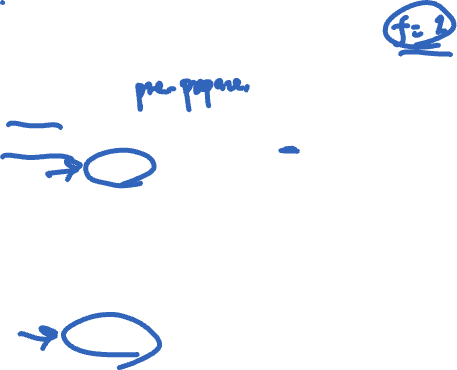 f=1
pre-prepare,